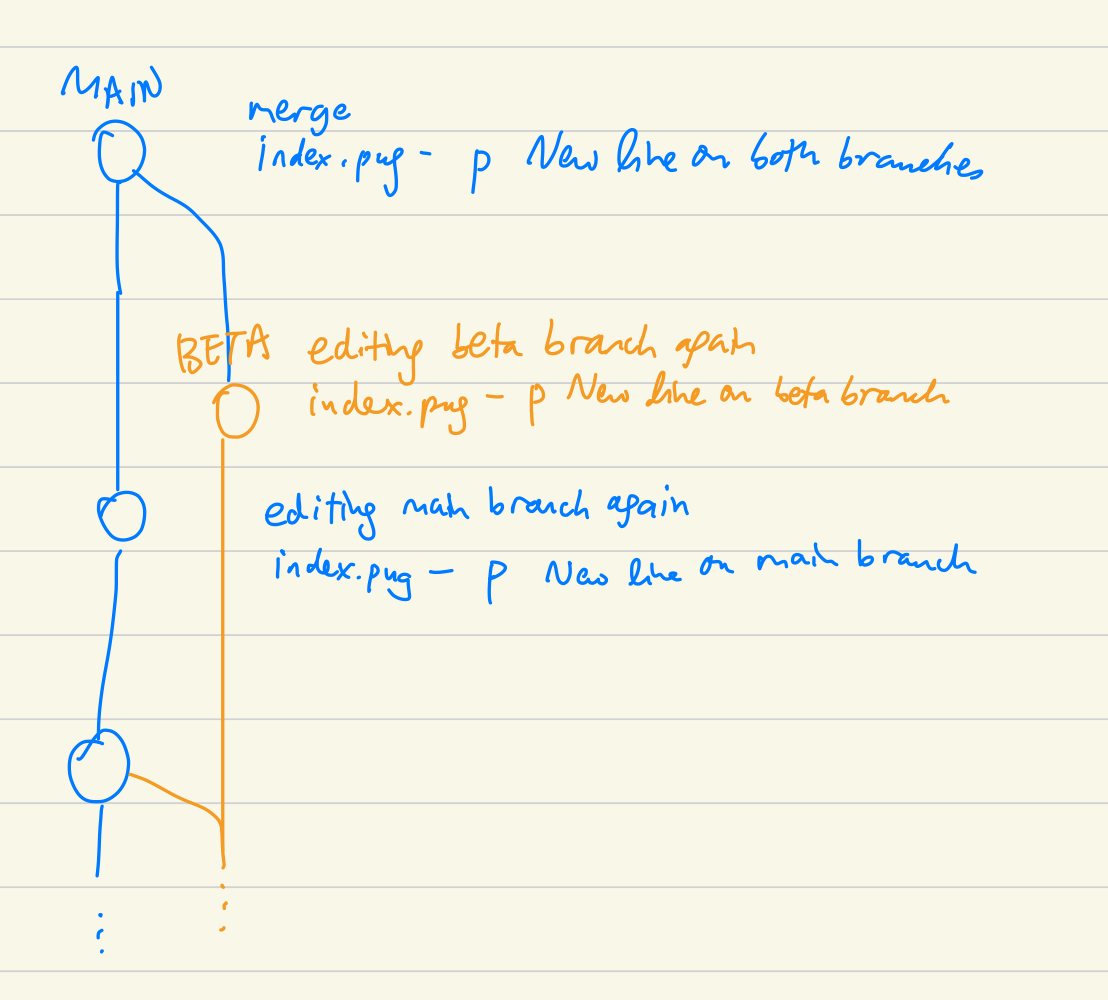 MAIN
merge
index.pug - p New line on both branches
BETA editing beta branch again
index.pug - p New line on beta branch
editing main branch again
index.pug - p New line on main branch